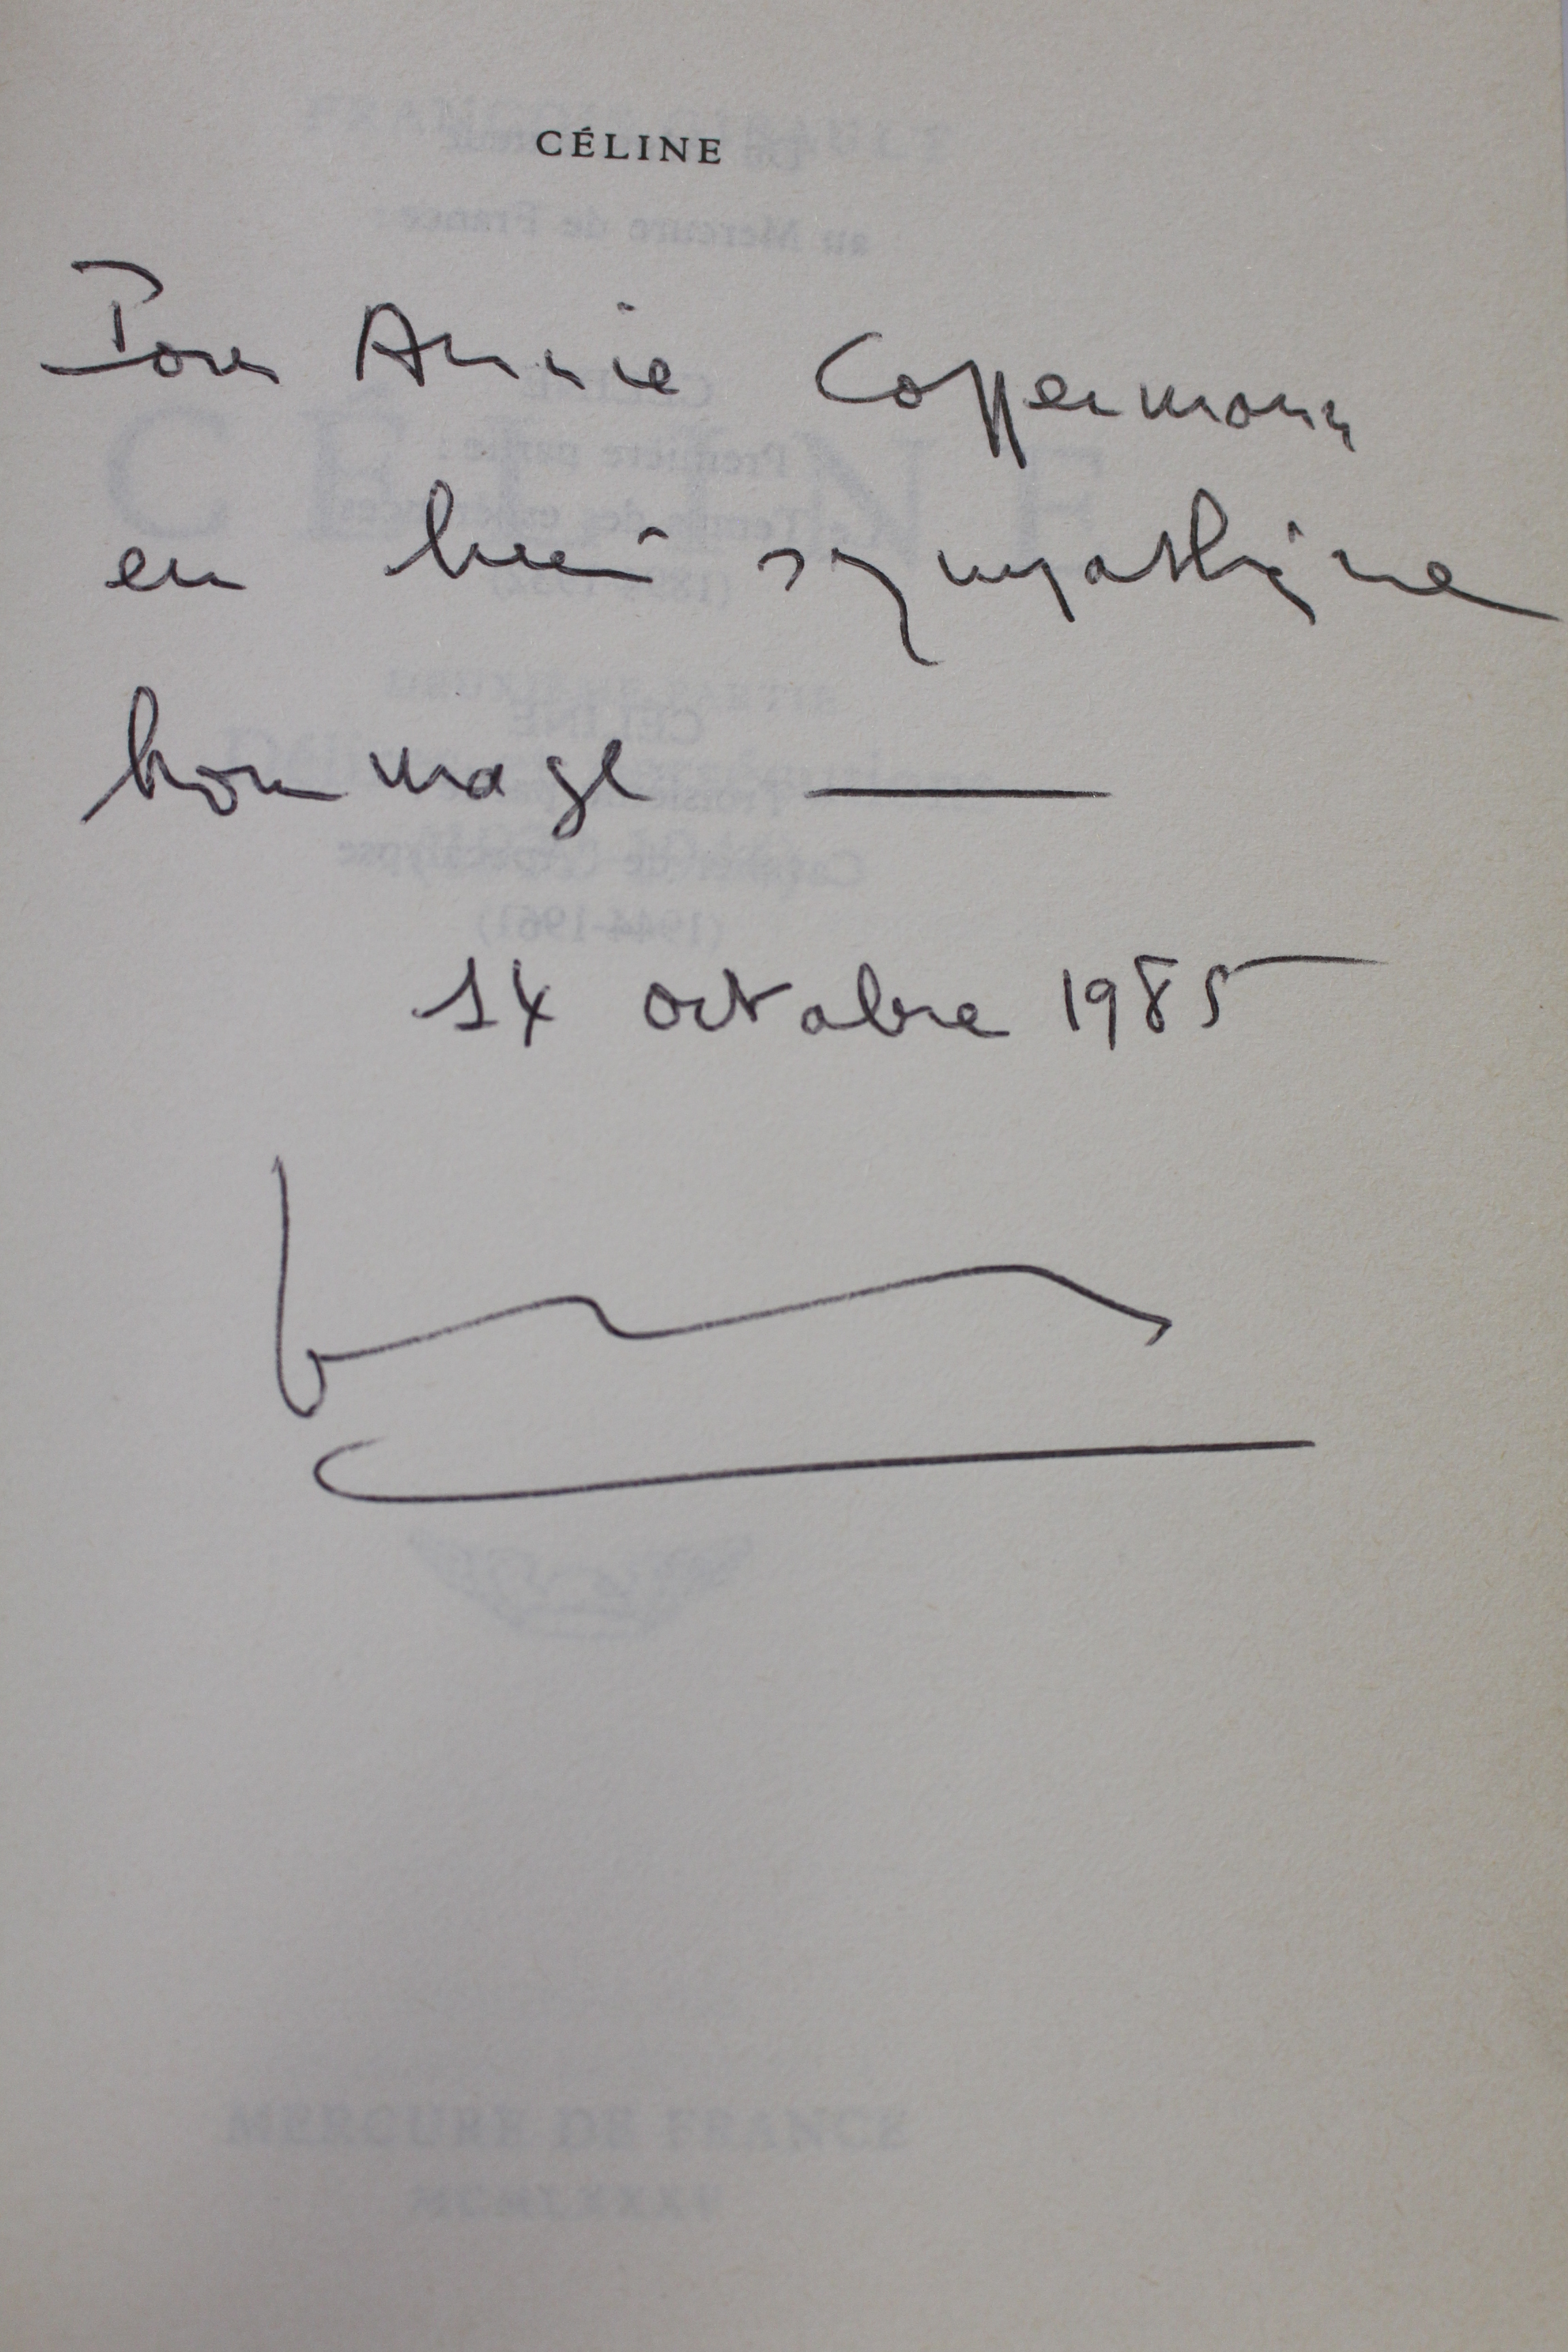 CÉLINE
Pour Annie Coppermann
en bien sympathique
hommage
14 octobre 1985
MERCURE DE FRANCE